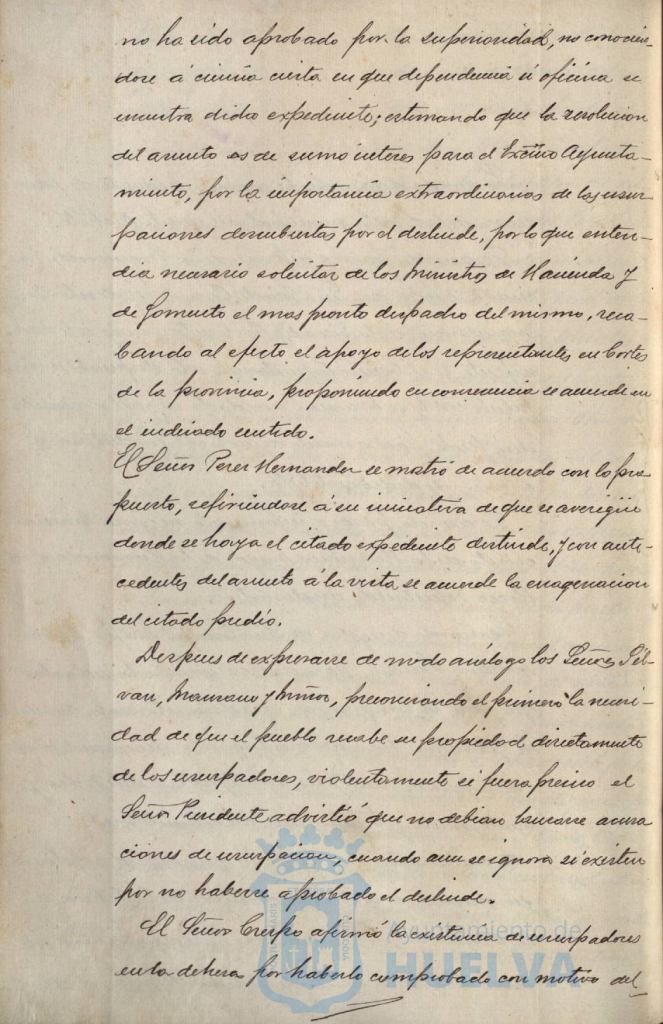 no ha sido aprobado por la superioridad, no conocien-
dose á ciencia cierta en que dependencia ú oficina se
encuentra dicho expediente; estimando que la resolucion
del asunto es de sumo interes para el Excmo Ayunta-
miento, por la importancia extraordinaria de las usur-
paciones descubiertas por el deslinde, por lo que enten-
dia necesario solicitar de los Ministros de Hacienda y
de Fomento el mas pronto despacho del mismo, reca-
bando al efecto el apoyo de los representantes en Cortes
de la provincia, proponiendo en consecuencia se acuerde en
el indicado sentido.
El Señor Perez Hernandez se mostró de acuerdo con lo pro-
puesto, refiriendose á su iniciativa de que se averigüe
donde se haya el citado expediente deslinde, y con ante-
cedentes del asunto á la vista se acuerde la enagenacion
del citado predio.
Despues de expresarse de modo análogo los Señores Sil-
van, Manzano y Muñoz, preconizando el primero la necesi-
dad de que el pueblo recabe su propiedad directamente
de los usurpadores, violentamente si fuera preciso el
Señor Presidente advirtió que no debian lanzarse acusa
ciones de usurpacion, cuando aun se ignora si existen
por no haberse aprobado el deslinde.
El Señor Crespo afirmó la existencia de usurpadores
en la dehesa por haberlo comprobado con motivo del
Ayuntamiento de
HUELVA